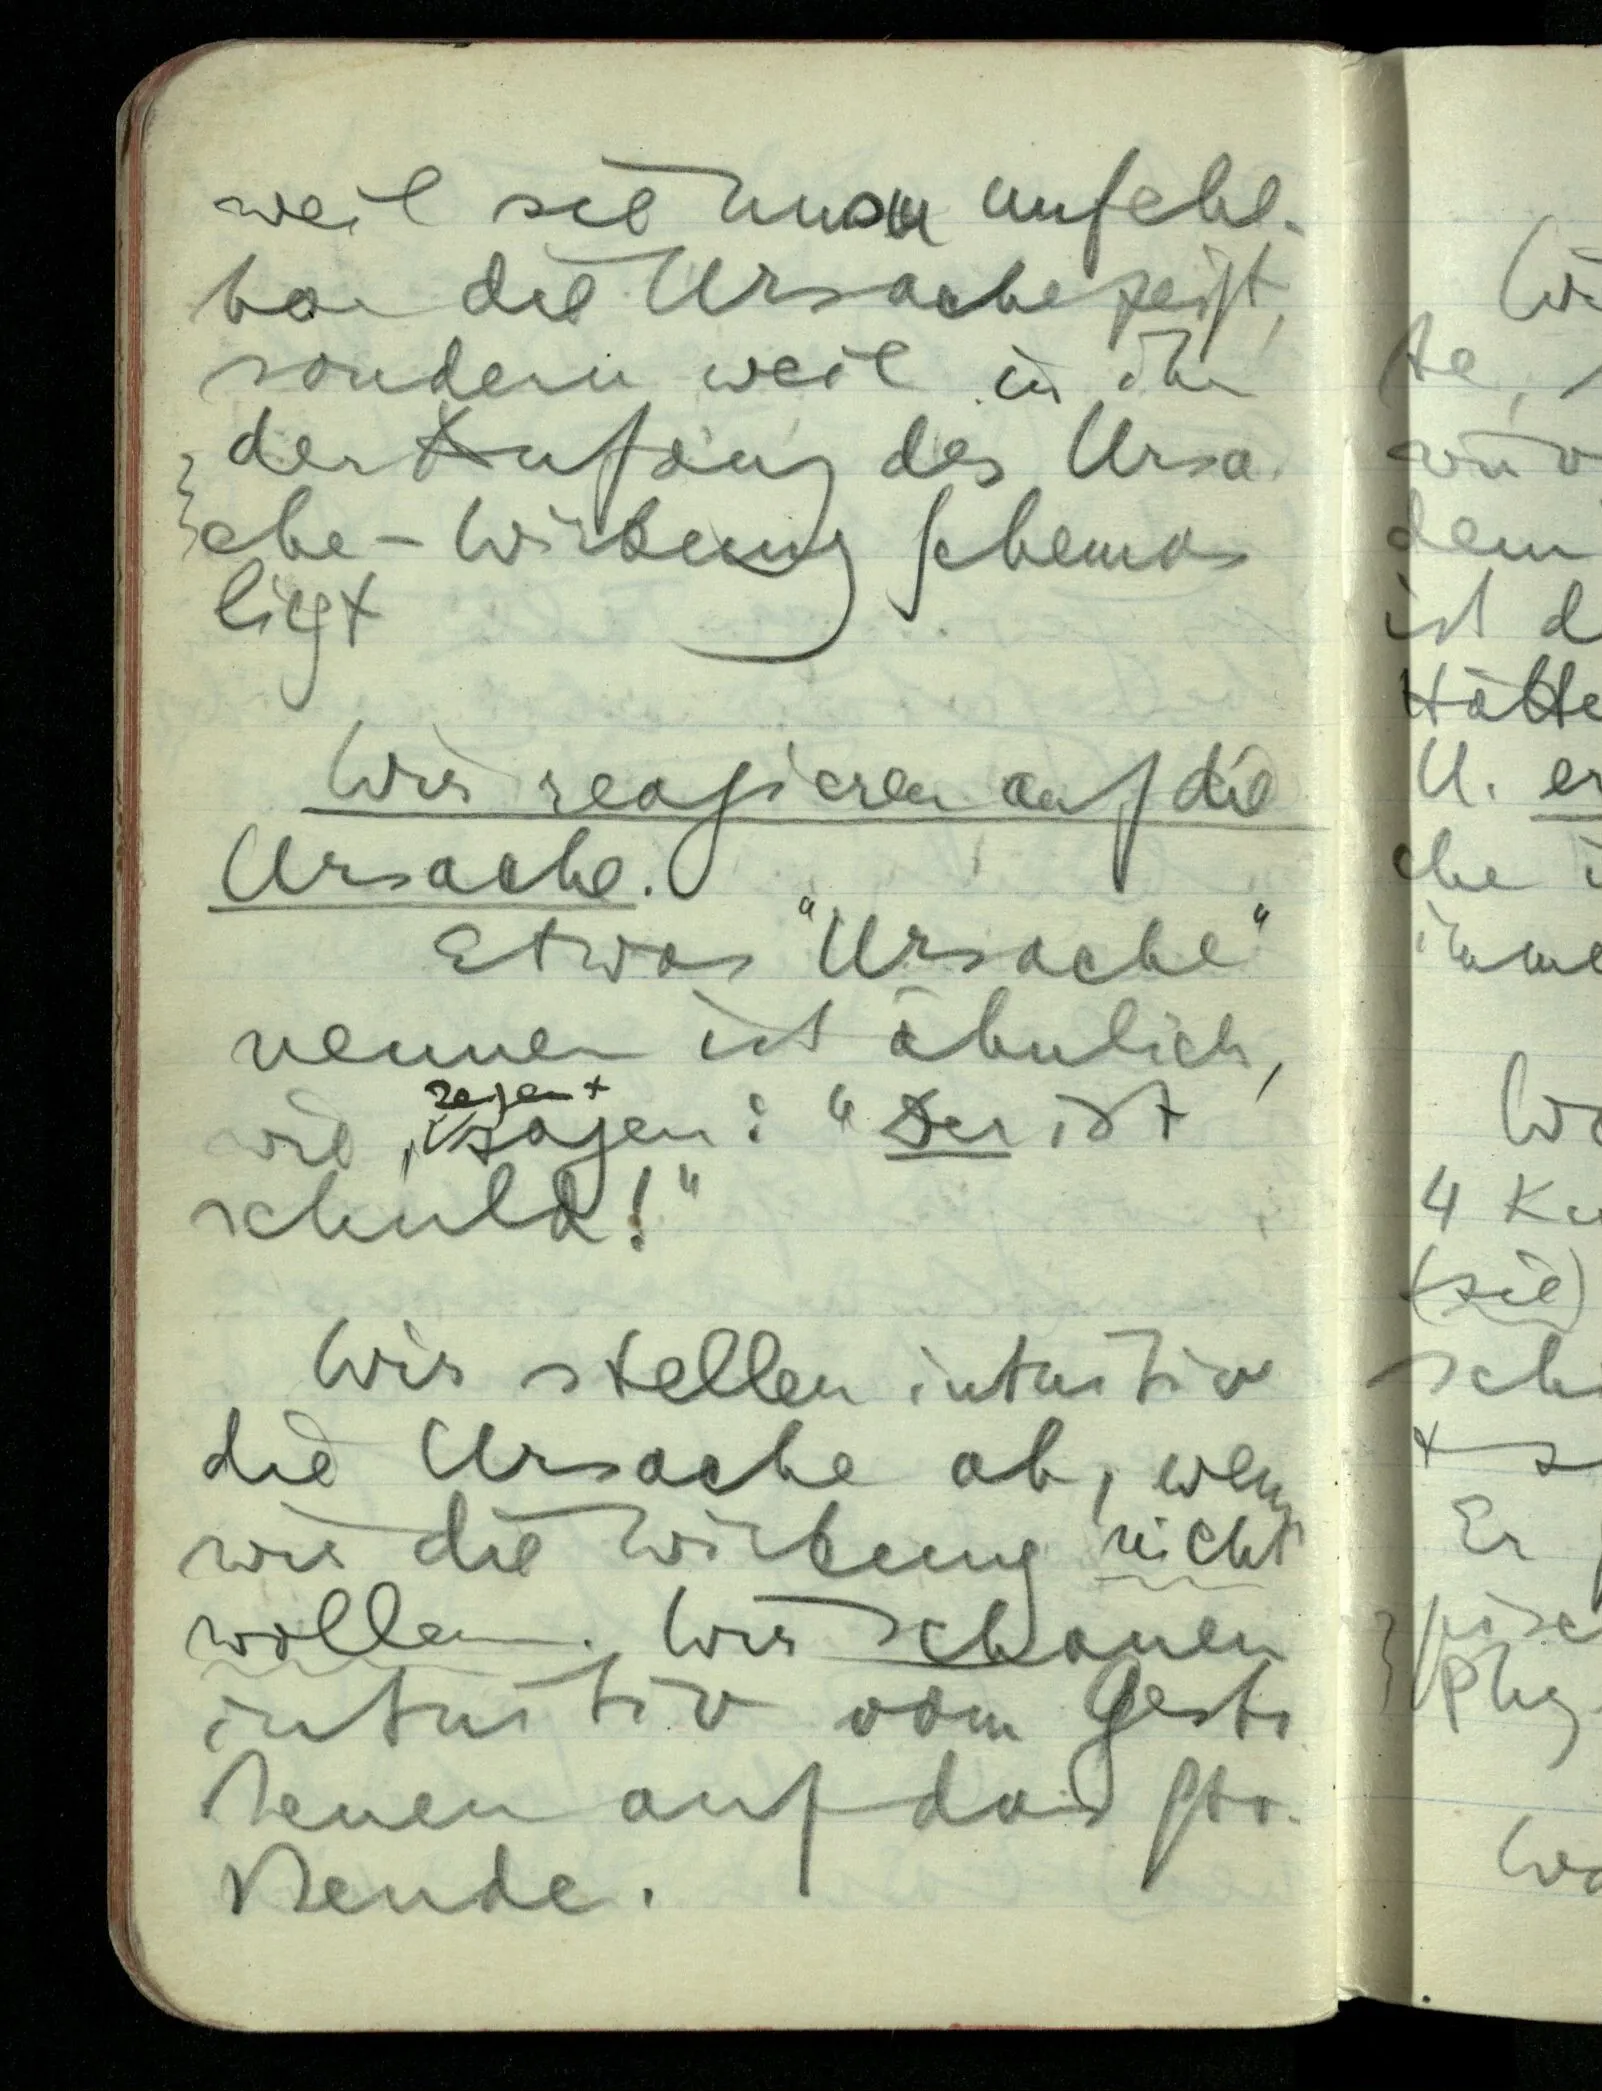 weil sie uns unfehl-
bar die Ursache zeigt,
sondern weil in ihr
der Anfang des Ursa-
che-Wirkung Schemas
liegt
Wir reagieren auf die
Ursache.
Etwas "Ursache"
nennen ist ähnlich,
zeigen +
wie, sagen: "Der ist
schuld!"
Wir stellen intuitiv
die Ursache ab, wenn
wir die Wirkung nicht
wollen. Wir schauen
intuitiv vom Gesto-
ßenen auf das Sto-
ßende.
Wi
te,
dem
ist d
Hätte
U. er
che i
imme
Wa
4 Ku
(sie)
sch
Er
pisch
Phy
Wa